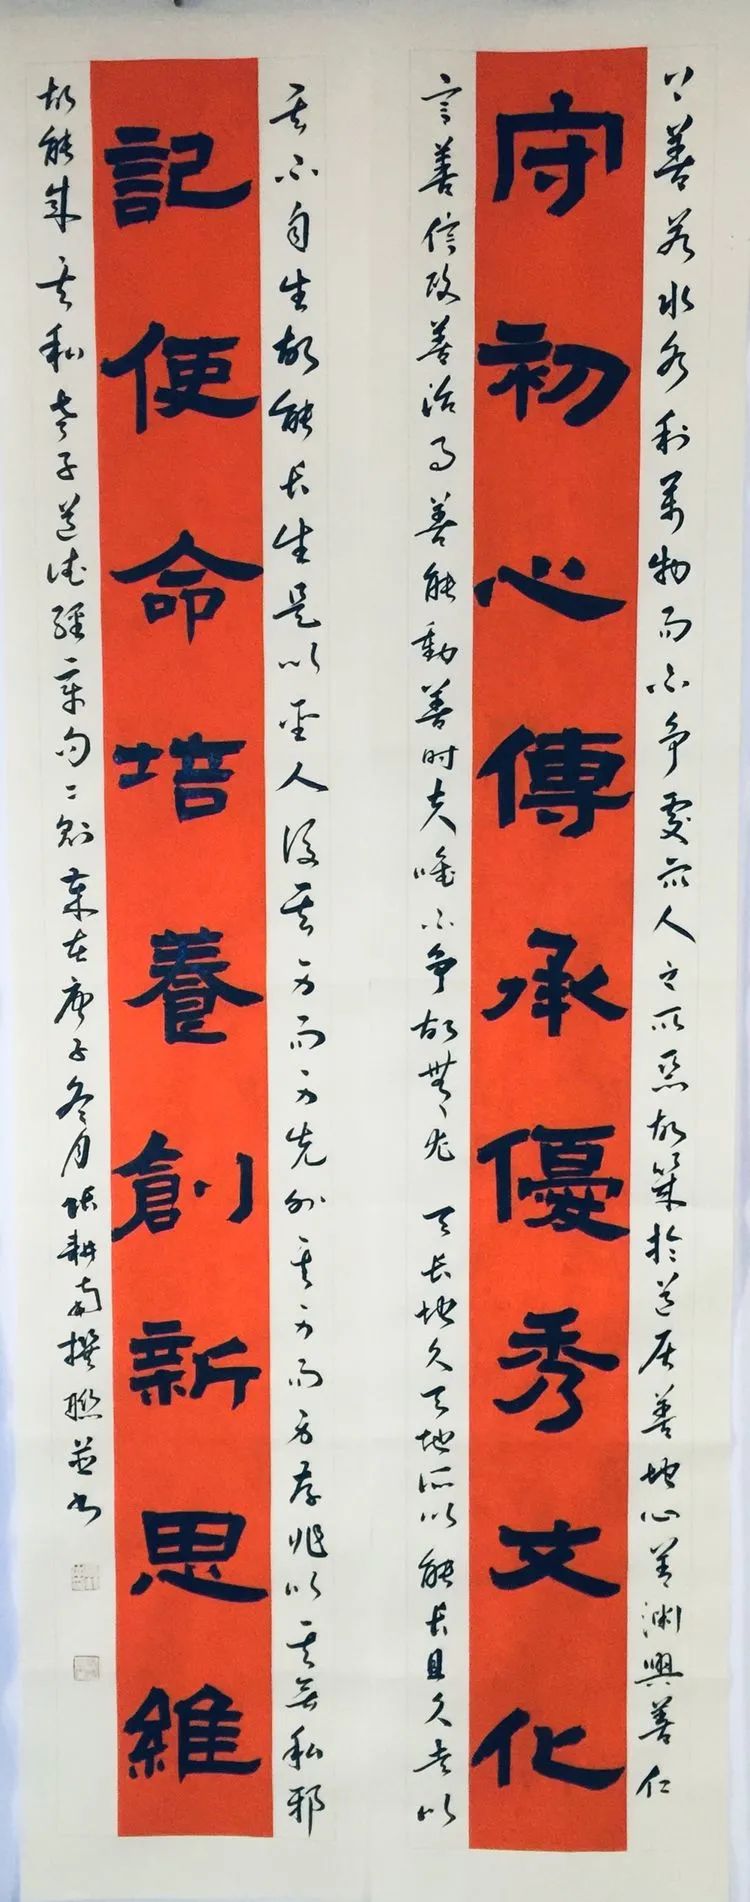 上善若水水利萬物而不争處眾人之所惡故幾於道居善地心善渊與善仁
守初心傳承優秀文化
言善信政善治事善能動善时夫唯不争故無尤 天长地久天地所以能长且久者以
其不自生故能长生是以聖人後其身而身先外其身而身存非以其無私邪
記使命培養創新思維
故能成其私老子道德經章句二則歲在庚子冬月耕南撰聯並书